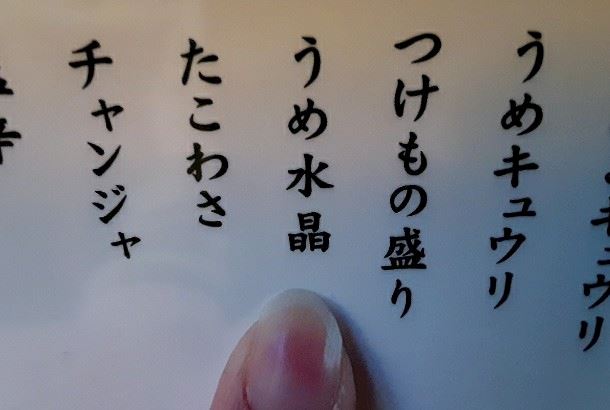 うめキュウリ
つけもの盛り
うめ水晶
たこわさ
チャンジャ